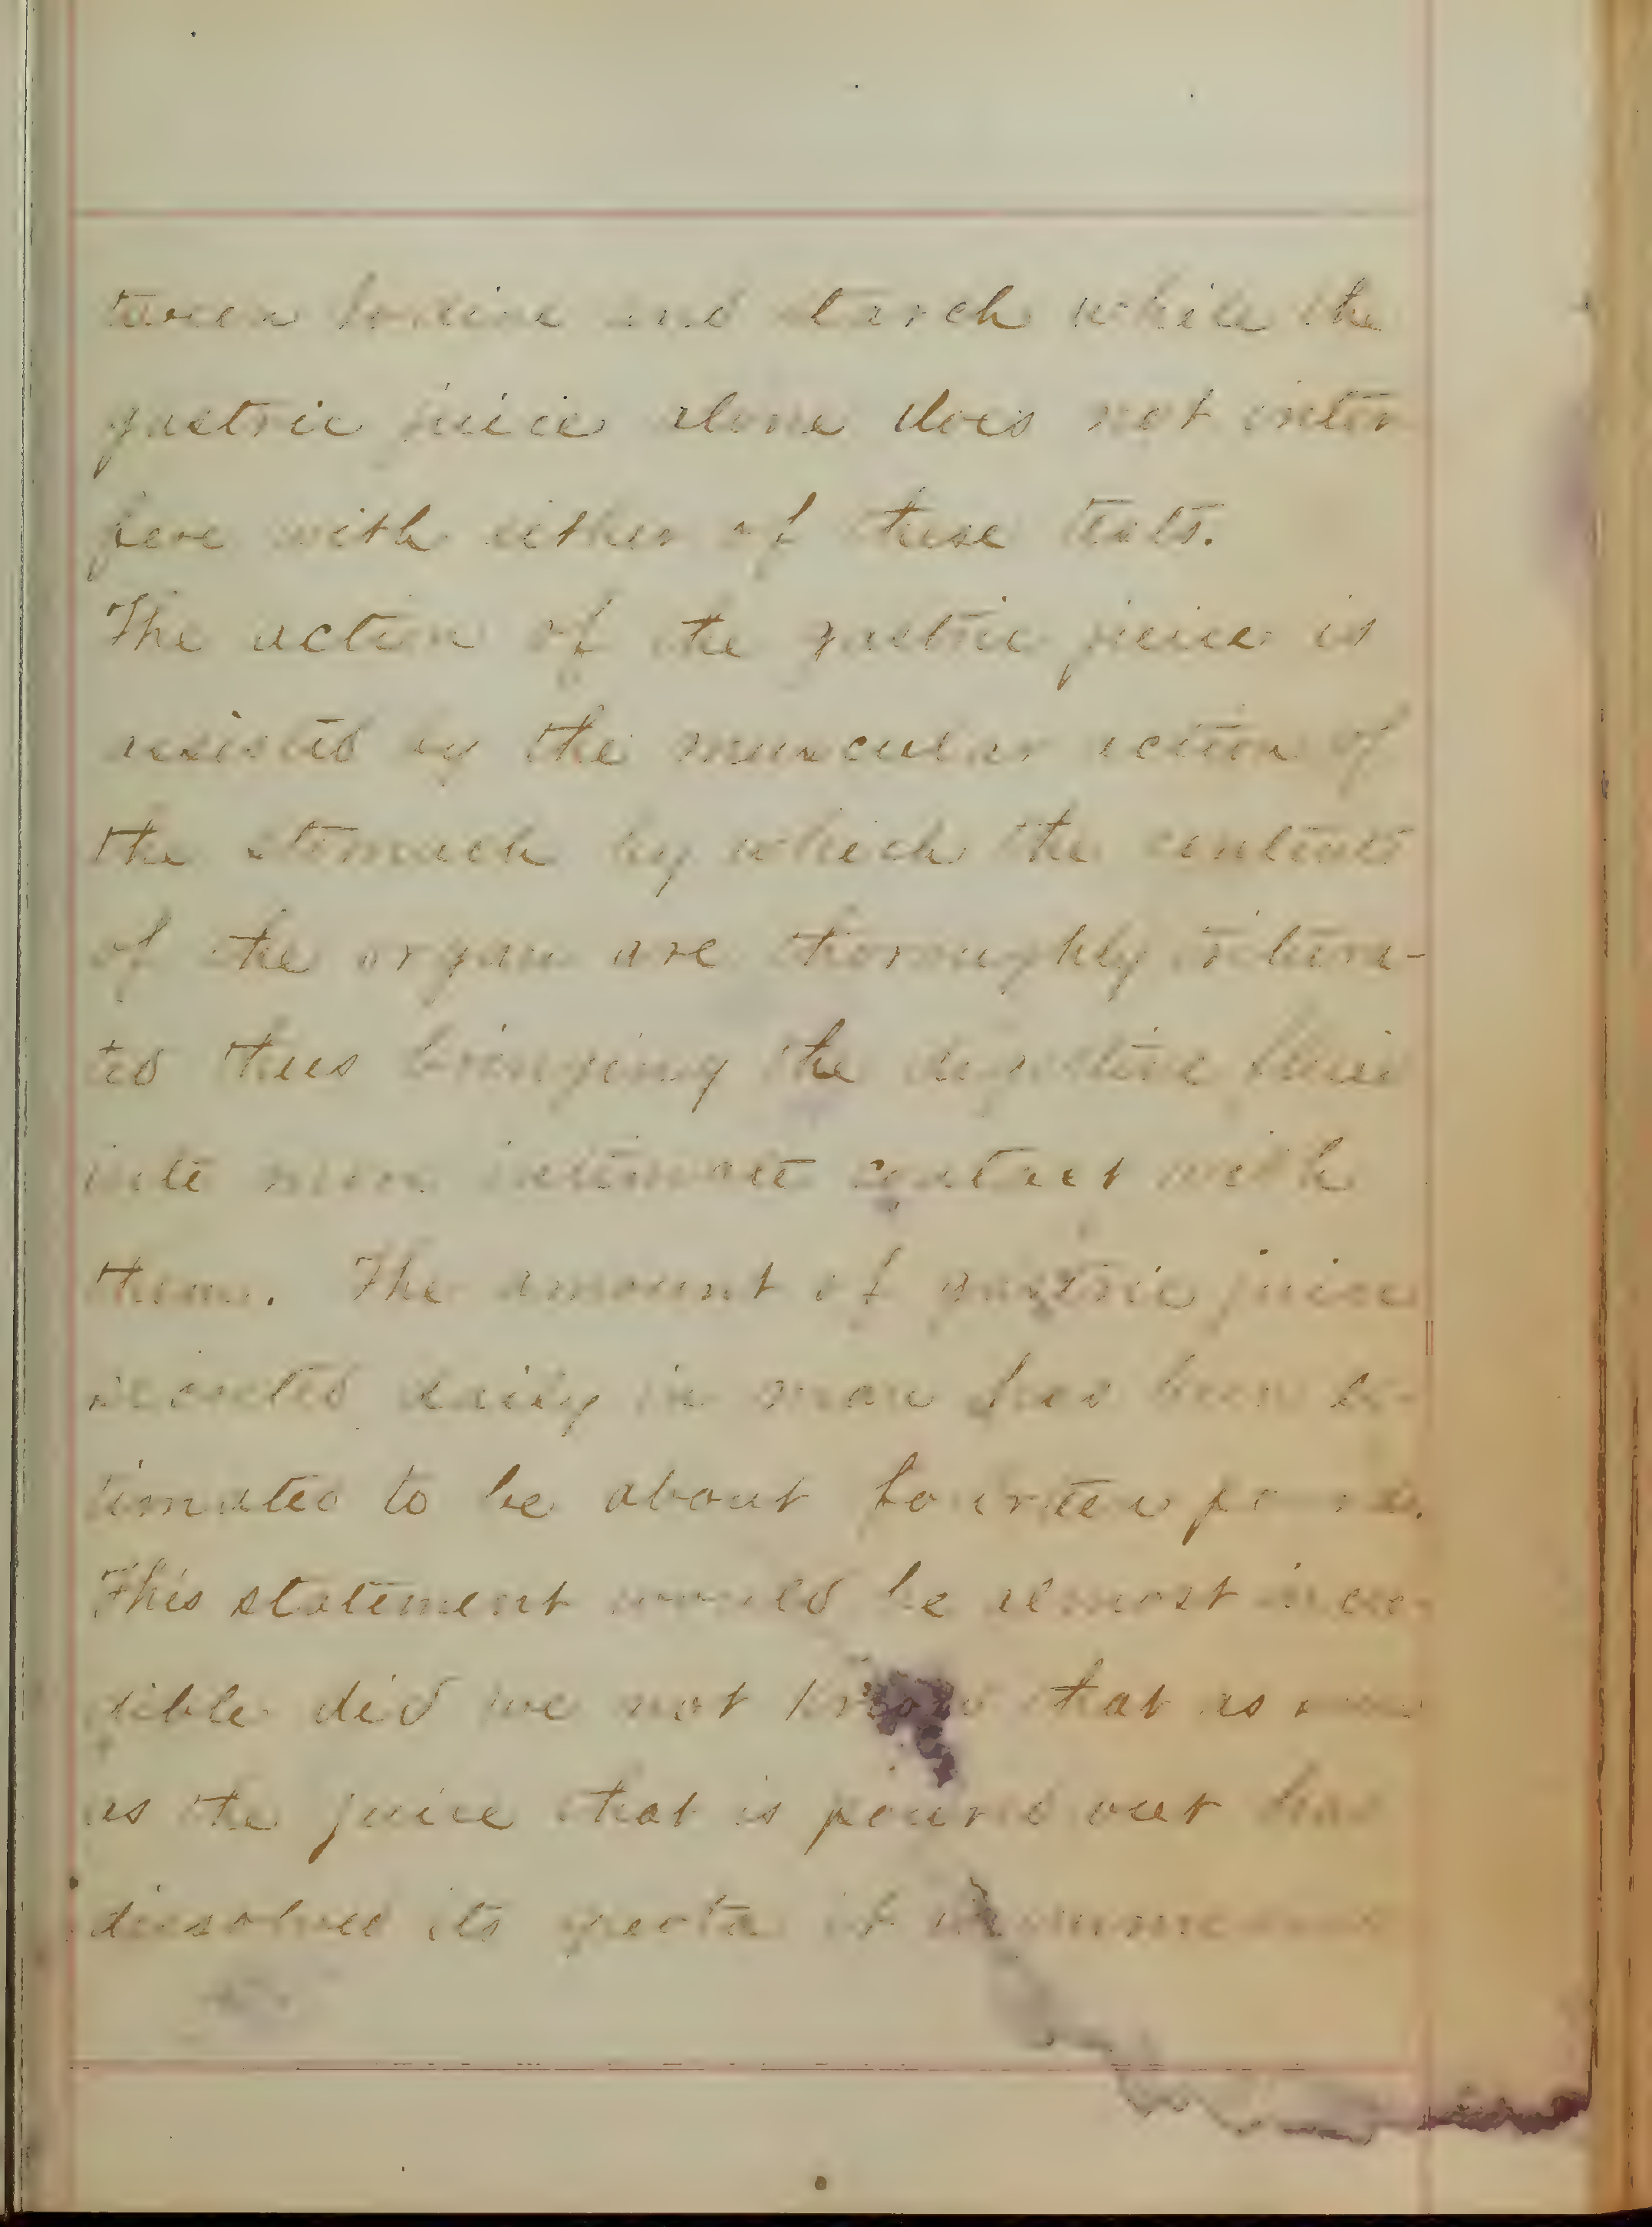 tween Iodine and starch while the
gastric juice alone does not inter
fere with either of these tests.
The action of the gastric juice is
assisted by the muscular action of
the stomach by which the contents
of the organ are thoroughly tritura-
ted thus bringing the digestive fluid
into more intimate contact with
them. The amount of gastric juice
secreted daily in man has been es-
timated to be about fourteen pounds.
This statement would be almost incre-
dible did we not know that as soon
as the juice that is poured out has
dissolved its quota it is